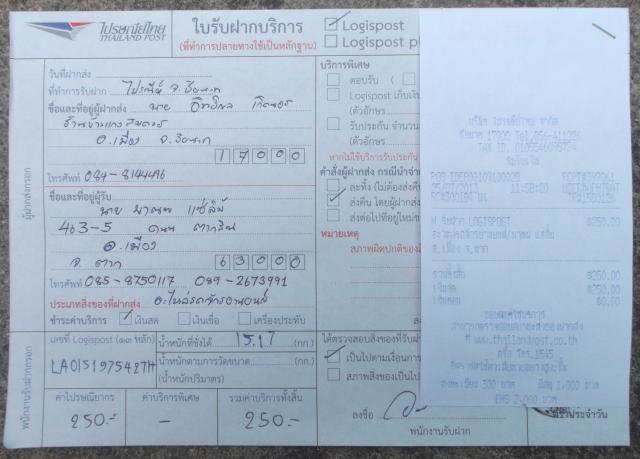 ไปรษณีย์ไทย
THAILAND POST
ใบรับฝากบริการ
(ที่ทำการปลายทางใช้เป็นหลักฐาน)
Logispost
Logispost pl
วันที่ฝากส่ง
ที่ทำการรับฝาก ไปรณีย์ จ.ชัยนาท
ชื่อและที่อยู่ผู้ฝากส่ง นาย
อ.เมือง จ.ชัยนาท
17000
โทรศัพท์ 084-8144496
ชื่อและที่อยู่ผู้รับ
นาย มานพ แซ่ลิ้ม
463-5 ถนน ตากสิน
อ.เมือง
จ. ตาก 63000
โทรศัพท์ 085-8750117 089-2673991
ประเภทสิ่งของที่ฝากส่ง อะไหล่รถจักรยานยนต์
ชำระค่าบริการ เงินสด เงินเชื่อ เครื่องประทับ
เลขที่ Logispost (๑๓ หลัก)
LA015197542TH
น้ำหนักที่ชั่งได้ 15.17 (กก.)
น้ำหนักตามการวัดขนาด (กก.)
(น้ำหนักปริมาตร)
ค่าไปรษณียากร ค่าบริการพิเศษ รวมค่าบริการทั้งสิ้น
250.- - 250.-
ผู้ฝากส่งกรอก
พนักงานรับฝากกรอก
บริการพิเศษ
ตอบรับ (
Logispost เก็บเงิน
(ตัวอักษร
รับประกัน จำนวน
(ตัวอักษร
หากไม่ใช้บริการรับประกัน
คำสั่งผู้ฝากส่ง กรณีนำจ่า
ละทิ้ง (ไม่ต้องส่งคืน
ส่งคืน โดยผู้ฝากส่ง
ส่งต่อไปที่อยู่ใหม่ข
หมายเหตุ
สภาพผิดปกติของ
ได้ตรวจสอบสิ่งของที่รับฝา
เป็นไปตามเงื่อนการ
สภาพสิ่งของเป็นไป
ลงชื่อ
พนักงานรับฝาก
ตราประจำวัน
บริษัท ไปรษณีย์ไทย จำกัด
ชัยนาท 17000 Tel.056-411026
11:58:20
M รับฝาก LOGISPOST ฿250.00
อ.เมือง จ.ตาก
รวมทั้งสิ้น ฿250.00
เงินสด ฿250.00
เงินทอน ฿0.00
ขอบคุณที่ใช้บริการ
ที่ www.thailandpost.co.th
หรือ โทร.1545
ลงทะเบียน 300 บาท พัสดุ 1,000 บาท
EMS 2,000 บาท